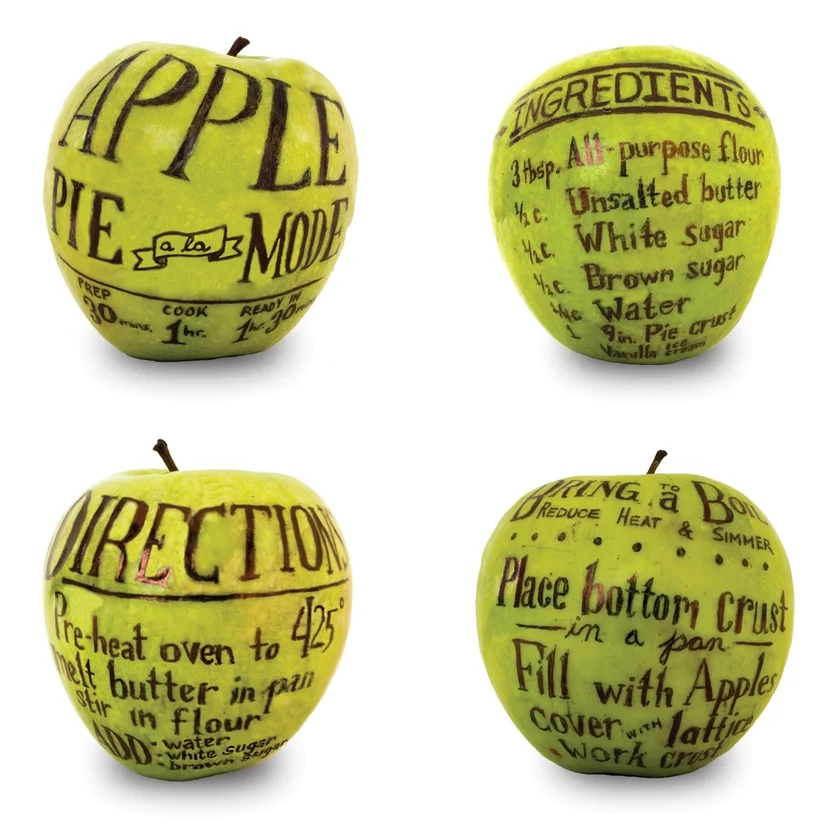 APPLE
PIE a la MODE
PREP COOK READY IN
30 mins. 1 hr. 1 hr. 30 mins
INGREDIENTS
3 tbsp. All-purpose flour
1/2 c. Unsalted butter
1/2 c. White sugar
1/2 c. Brown sugar
Water
1 9in. Pie crust
Vanilla ice cream
DIRECTIONS
Pre-heat oven to 425°
melt butter in pan
stir in flour
ADD: water
white sugar
brown sugar
BRING TO a BOIL
REDUCE HEAT & SIMMER
Place bottom crust
in a pan
Fill with Apples
cover WITH lattice
work crust